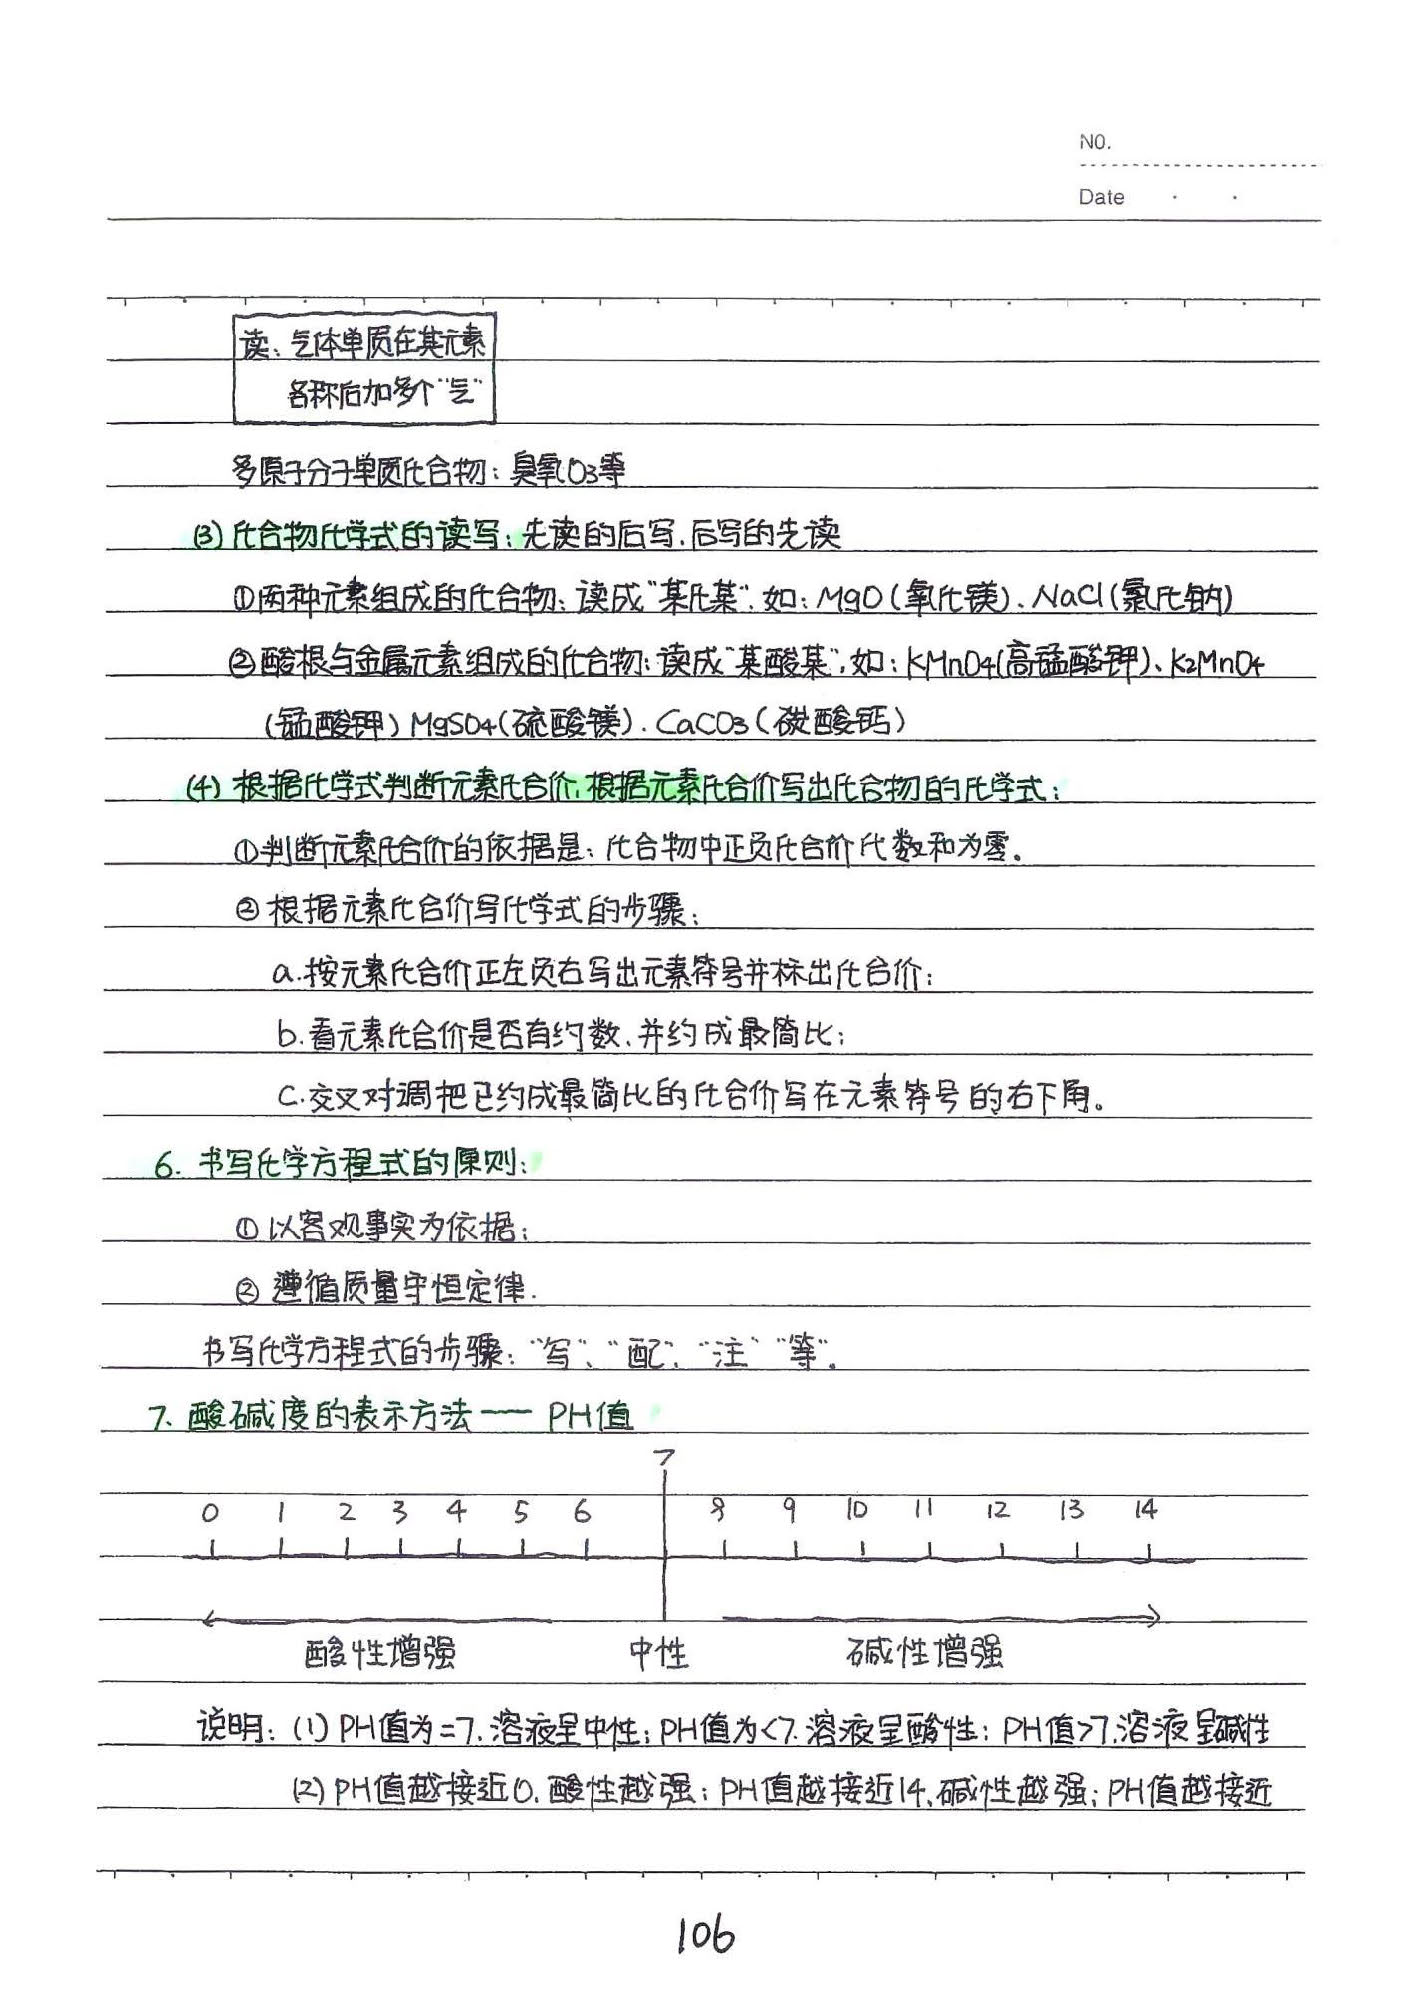 NO.
Date
读：气体单质在其元素
各称后加多个“气”
多原子分子单质化合物：臭氧O3等
(3) 化合物化学式的读写：先读的后写.后写的先读
①两种元素组成的化合物：读成“某化某”.如：MgO(氧化镁)、NaCl(氯化钠)
②酸根与金属元素组成的化合物：读成“某酸某”，如：KMnO4(高锰酸钾)、K2MnO4
(锰酸钾) MgSO4(硫酸镁). CaCO3(碳酸钙)
(4) 根据化学式判断元素化合价，根据元素化合价写出化合物的化学式：
①判断元素化合价的依据是：化合物中正负化合价代数和为零。
②根据元素化合价写化学式的步骤：
a.按元素化合价正左负右写出元素符号并标出化合价；
b.看元素化合价是否有约数、并约成最简比；
C.交叉对调把已约成最简比的化合价写在元素符号的右下角。
6. 书写化学方程式的原则：
①以客观事实为依据；
②遵循质量守恒定律.
书写化学方程式的步骤：“写”、“配”、“注”“等”.
7、酸碱度的表示方法——PH值
7
0 1 2 3 4 5 6 8 9 10 11 12 13 14
酸性增强 中性 碱性增强
说明：(1) PH值为=7.溶液呈中性；PH值为<7.溶液呈酸性；PH值>7.溶液呈碱性
(2) PH值越接近0.酸性越强；PH值越接近14、碱性越强；PH值越接近
106